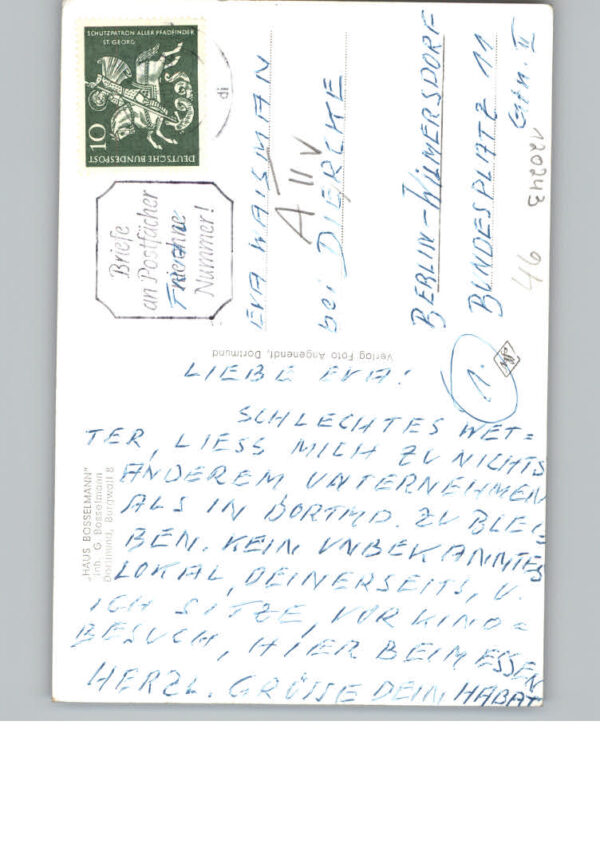 SCHUTZPATRON ALLER PFADFINDER
ST GEORG
10
DEUTSCHE BUNDESPOST
Briefe
an Postfächer
nie ohne
Nummer!
EVA WAISMAN
A II V
bei DIERCKE
BERLIN-WILMERSDORF
BUNDESPLATZ 11
Gtn. II
020243
46
1.
Verlag Foto Angenendt, Dortmund
„HAUS BOSSELMANN"
Inh. G. Bosselmann
Dortmund, Burgwall 8
LIEBE EVA!
SCHLECHTES WET=
TER, LIESS MICH ZU NICHTS
ANDEREM UNTERNEHMEN
ALS IN DORTMD. ZU BLEI=
BEN. KEIN UNBEKANNTES
LOKAL, DEINERSEITS, U.
ICH SITZE, VOR KINO=
BESUCH, HIER BEIM ESSEN
HERZL. GRÜSSE DEIN